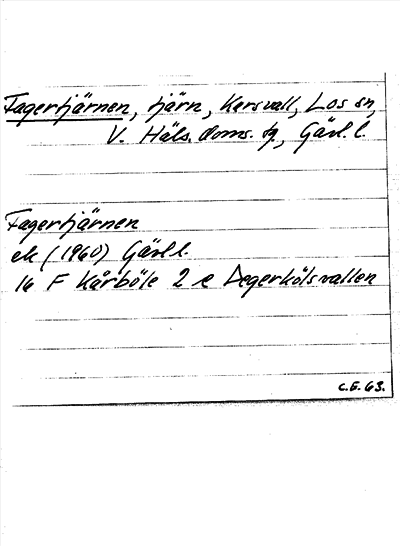 Fagertjärnen, tjärn, Karsvall, Los sn,
V. Häls. doms. tg, Gävl. l.
Fagertjärnen
ek (1960) Gävl l.
16 F Kårböle 2 e Degerkölsvallen
C.E. 63.